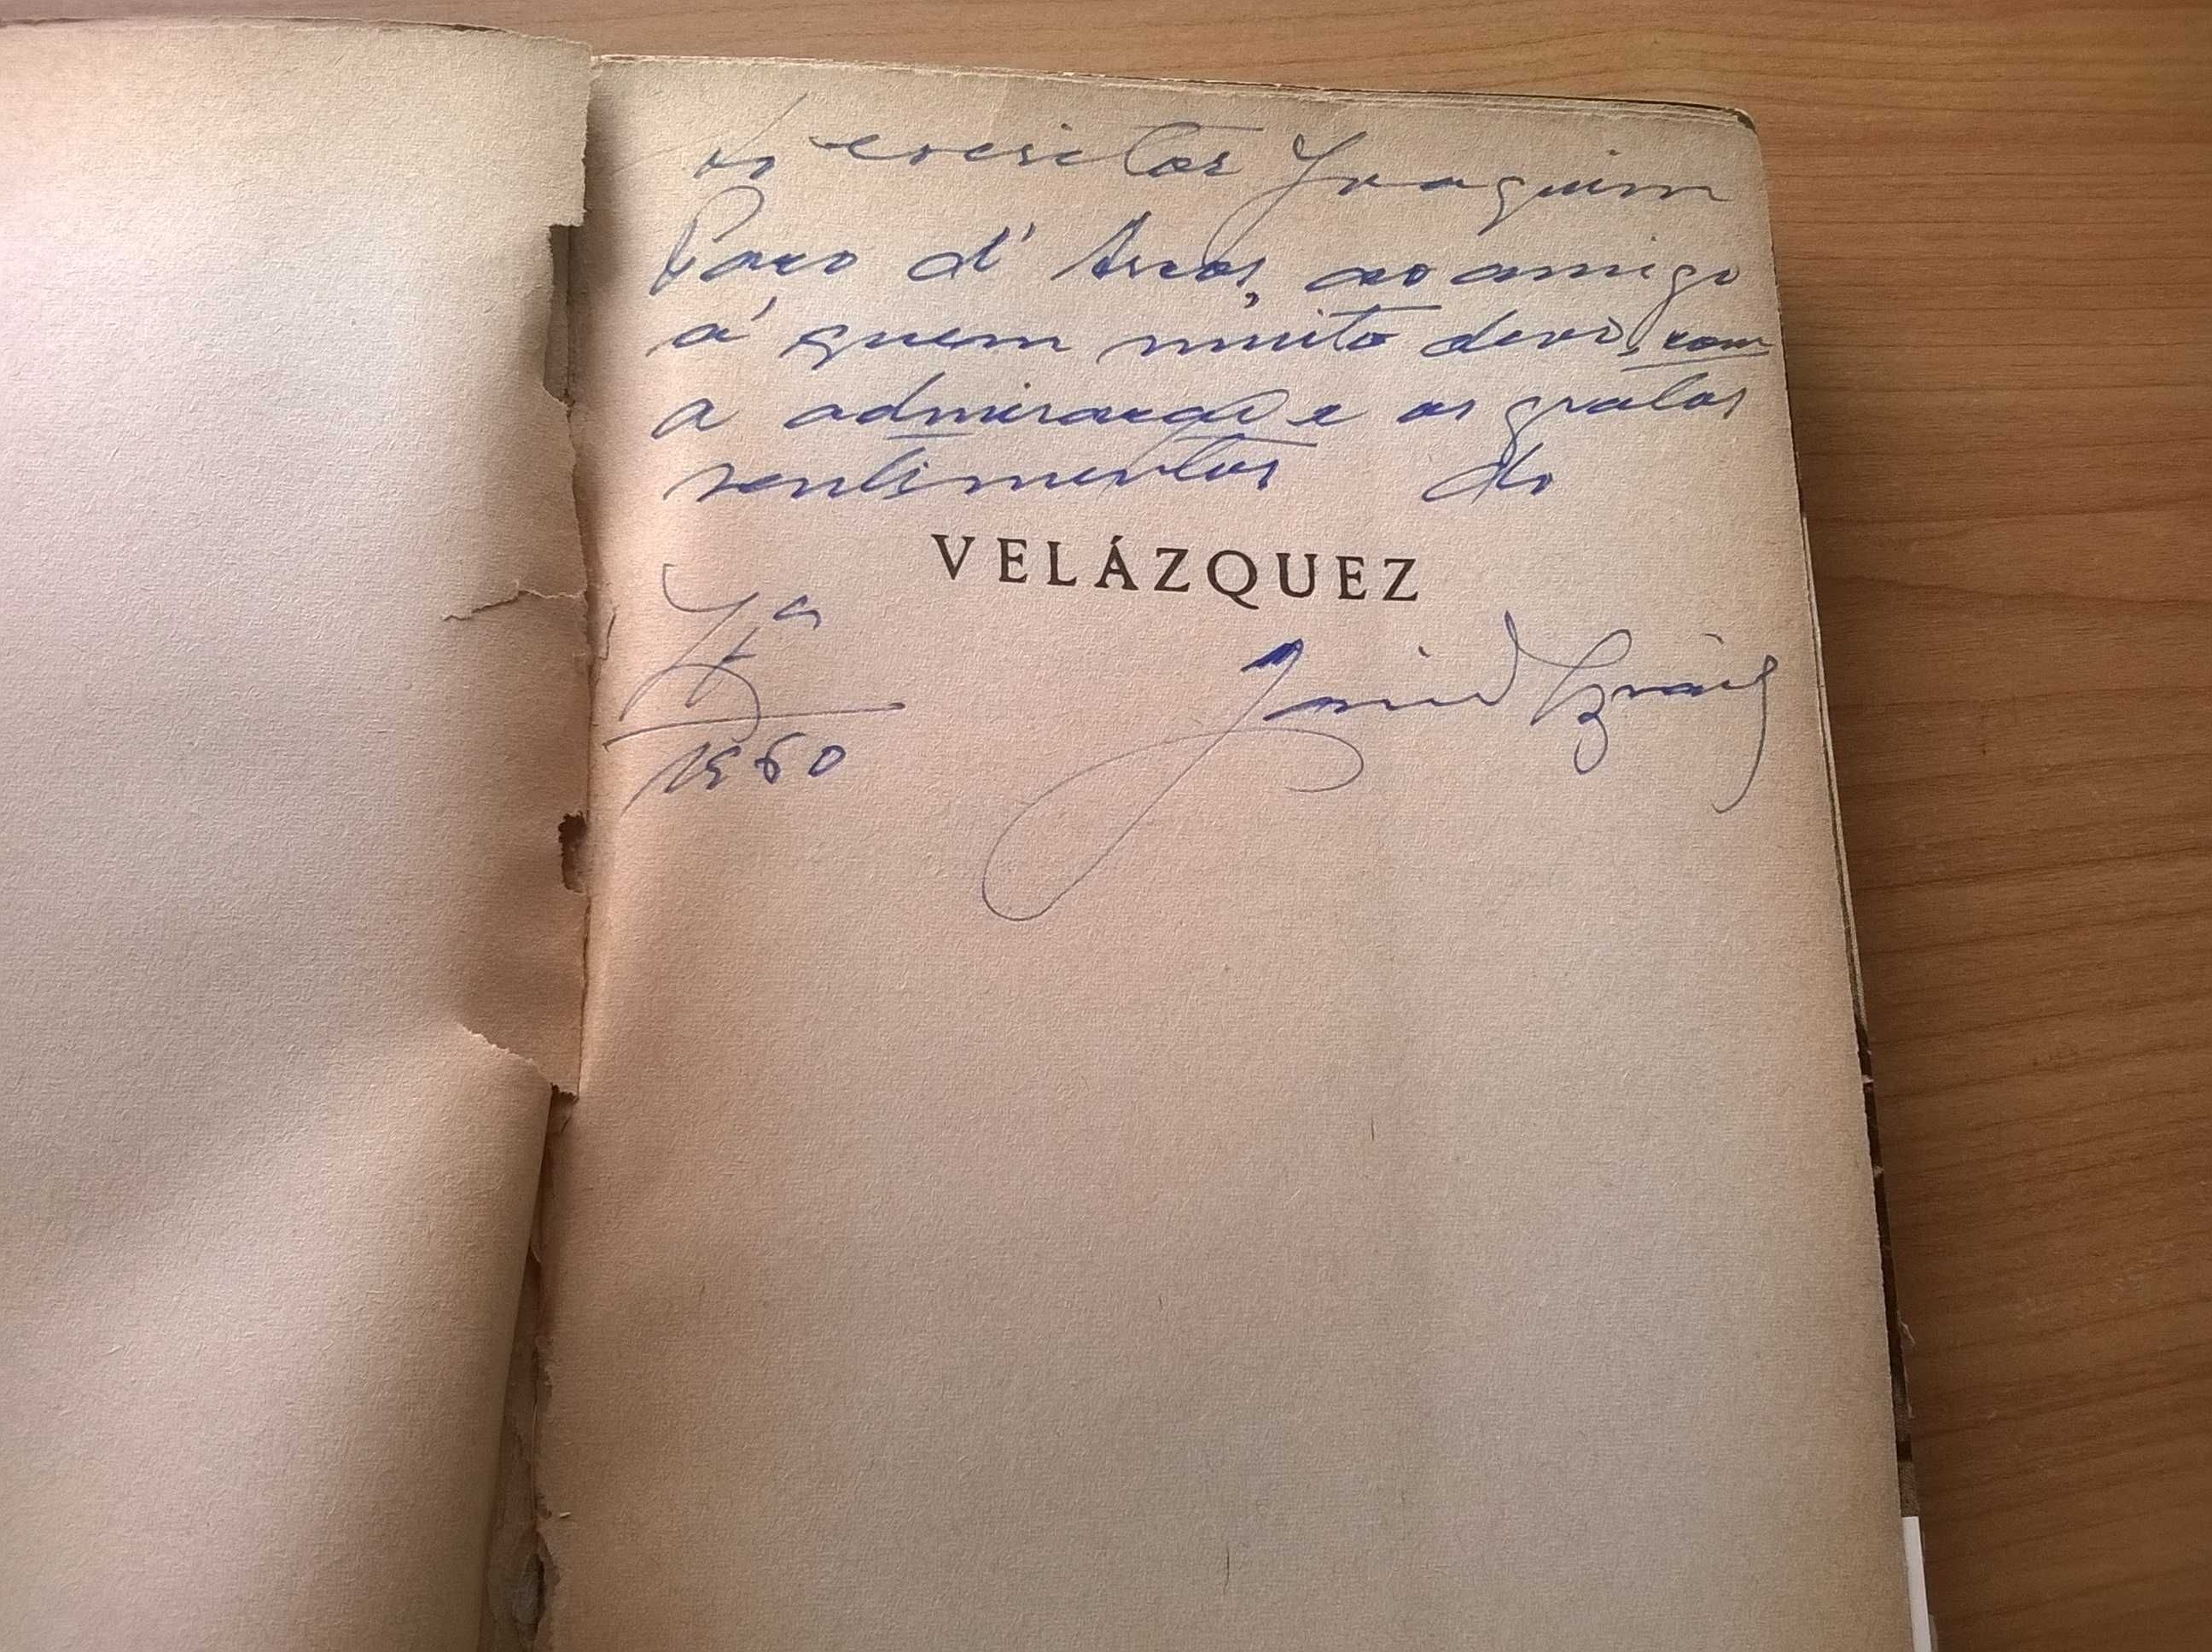 Ao escritor Joaquim
Paço d'Arcos, ao amigo
a quem muito devo, com
a admiração e os gratos
sentimentos do
VELÁZQUEZ
Lxª
1960